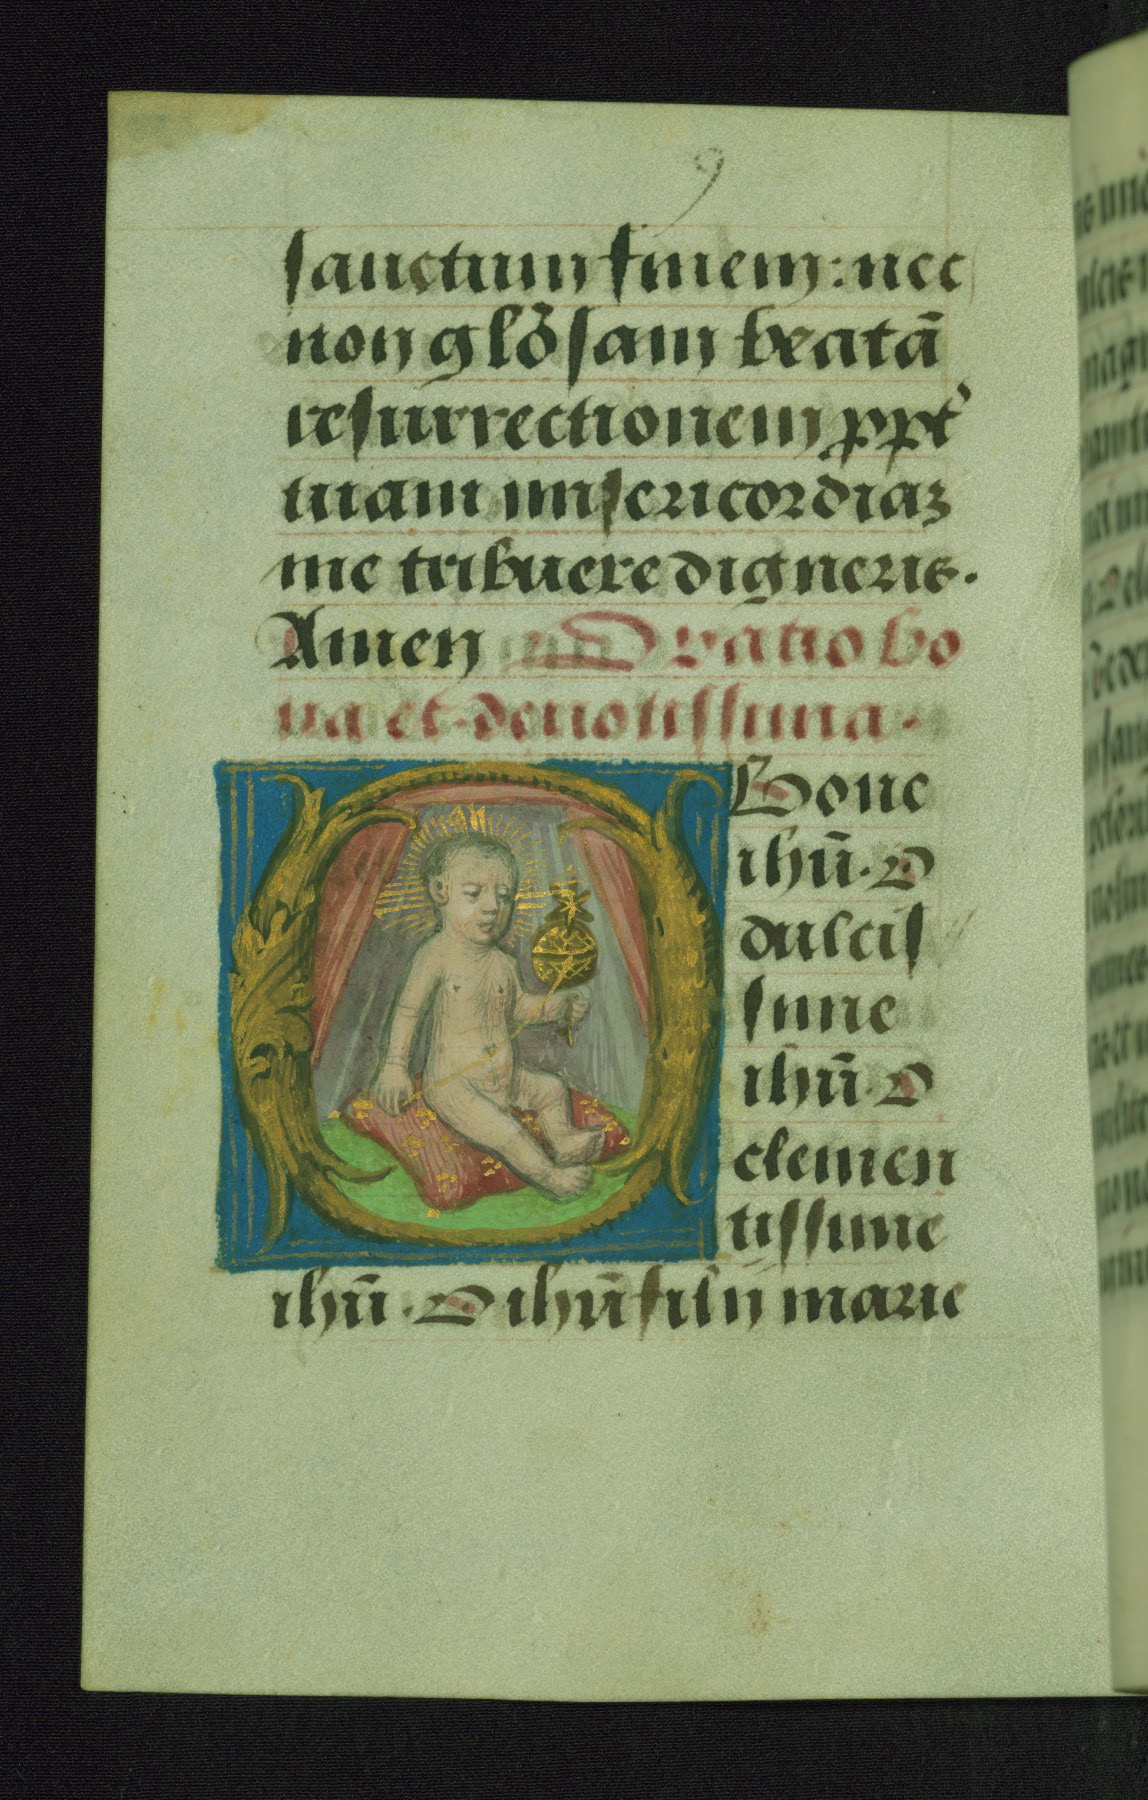 9
sanctum finem: nec
non gl̃osam beatã
resurrectionem ꝓpt̓
tuam misericordiaꝫ
me tribuere digneris.
Amen Oratio bo
na et deuotissima.
O Bone
ihũ. O
dulcis
sime
ihũ. O
clemen
tissime
ihũ. O ihũ filij marie